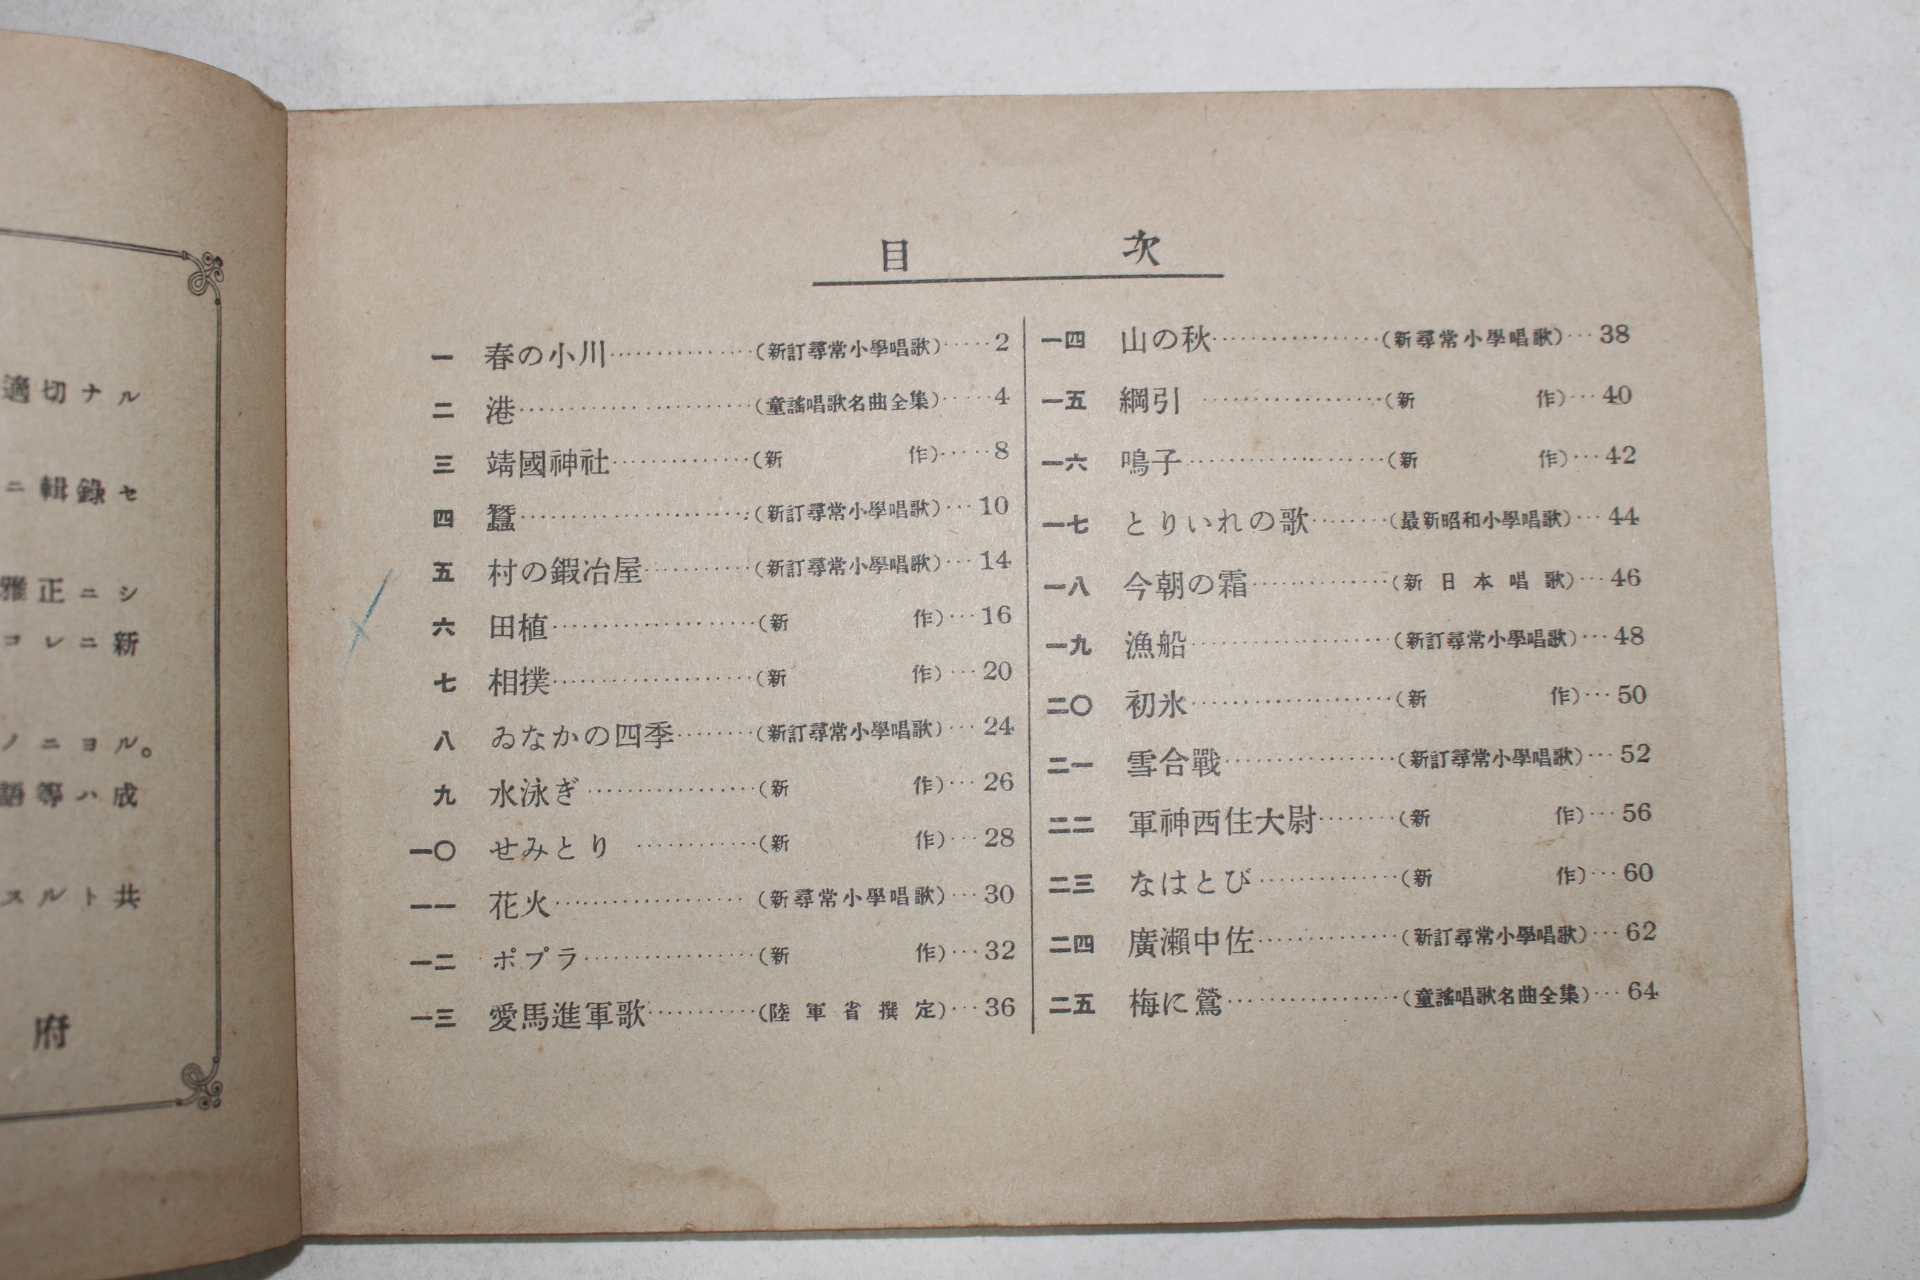 適切ナル
ニ輯錄セ
雅正ニシ
コレニ新
ノニヨル。
語等ハ成
スルト共
府
目 次
一 春の小川……………(新訂尋常小學唱歌)……2
二 港……………………(童謠唱歌名曲全集)……4
三 靖國神社……………(新 作)……8
四 蠶……………………(新訂尋常小學唱歌)…10
五 村の鍛冶屋…………(新訂尋常小學唱歌)…14
六 田植…………………(新 作)…16
七 相撲…………………(新 作)…20
八 ゐなかの四季………(新訂尋常小學唱歌)…24
九 水泳ぎ………………(新 作)…26
一〇 せみとり…………(新 作)…28
一一 花火………………(新尋常小學唱歌)…30
一二 ポプラ……………(新 作)…32
一三 愛馬進軍歌………(陸軍省撰定)…36
一四 山の秋……………(新尋常小學唱歌)…38
一五 綱引………………(新 作)…40
一六 鳴子………………(新 作)…42
一七 とりいれの歌……(最新昭和小學唱歌)…44
一八 今朝の霜…………(新日本唱歌)…46
一九 漁船………………(新訂尋常小學唱歌)…48
二〇 初氷………………(新 作)…50
二一 雪合戰……………(新訂尋常小學唱歌)…52
二二 軍神西住大尉……(新 作)…56
二三 なはとび…………(新 作)…60
二四 廣瀨中佐…………(新訂尋常小學唱歌)…62
二五 梅に鶯……………(童謠唱歌名曲全集)…64